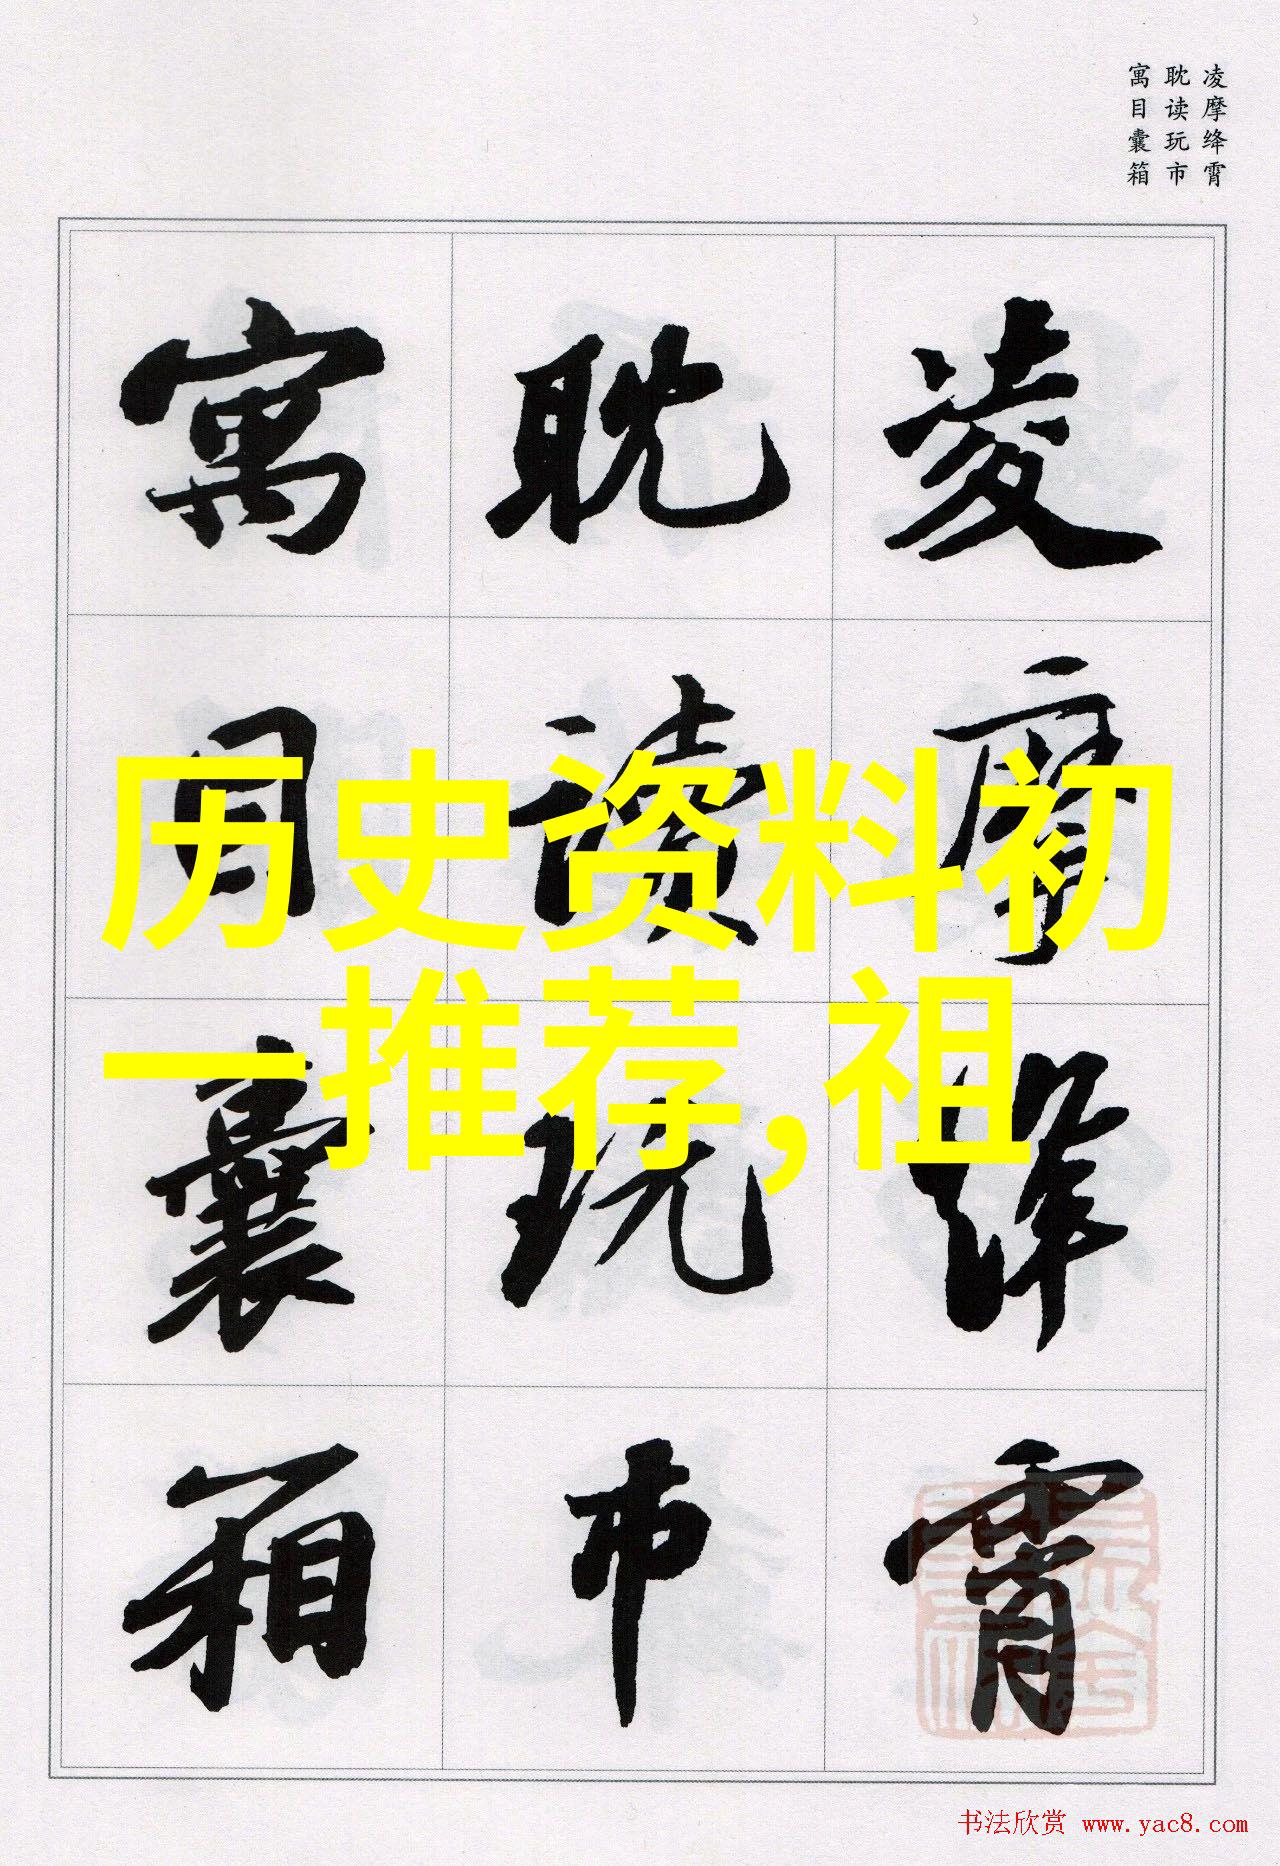 凌摩绛霄
耽读玩市
寓目囊箱
凌摩绛霄
耽读玩市
寓目囊箱
历史资料初
一推荐,祖
书法欣赏 www.yac8.com